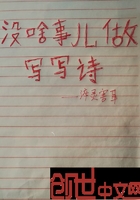 没啥事儿做
写写诗
创世
中文网